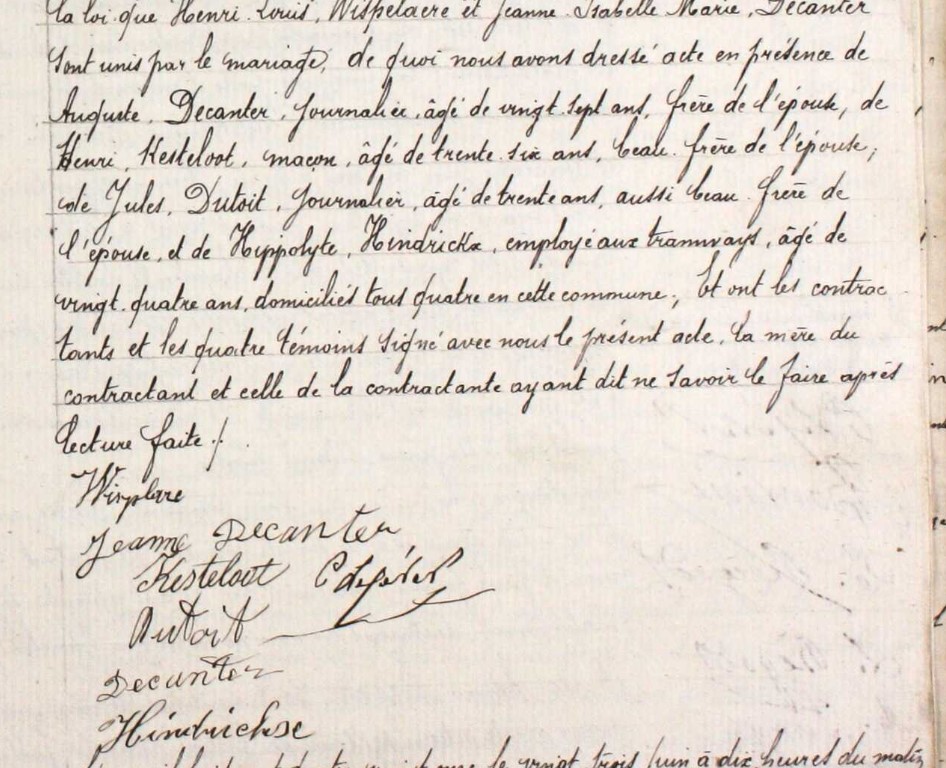 la loi que Henri Louis, Wispelaere et Jeanne Isabelle Marie, Decanter
sont unis par le mariage, de quoi nous avons dressé acte en présence de
Auguste, Decanter, journalier, âgé de vingt sept ans, frère de l'épouse, de
Henri, Kesteloot, maçon, âgé de trente six ans, beau frère de l'épouse,
de Jules, Dutoit, journalier, âgé de trente ans, aussi beau frère de
l'épouse, et de Hippolyte, Hindrickx, employé aux tramways, âgé de
vingt quatre ans, domiciliés tous quatre en cette commune; Et ont les contrac
tants et les quatre témoins signé avec nous le présent acte, la mère du
contractant et celle de la contractante ayant dit ne savoir le faire après
lecture faite ./.
Wisplare
Jeanne Decanter
Kesteloot
Dutoit
Decanter
Hindrickse
vingt trois juin à dix heures du matin